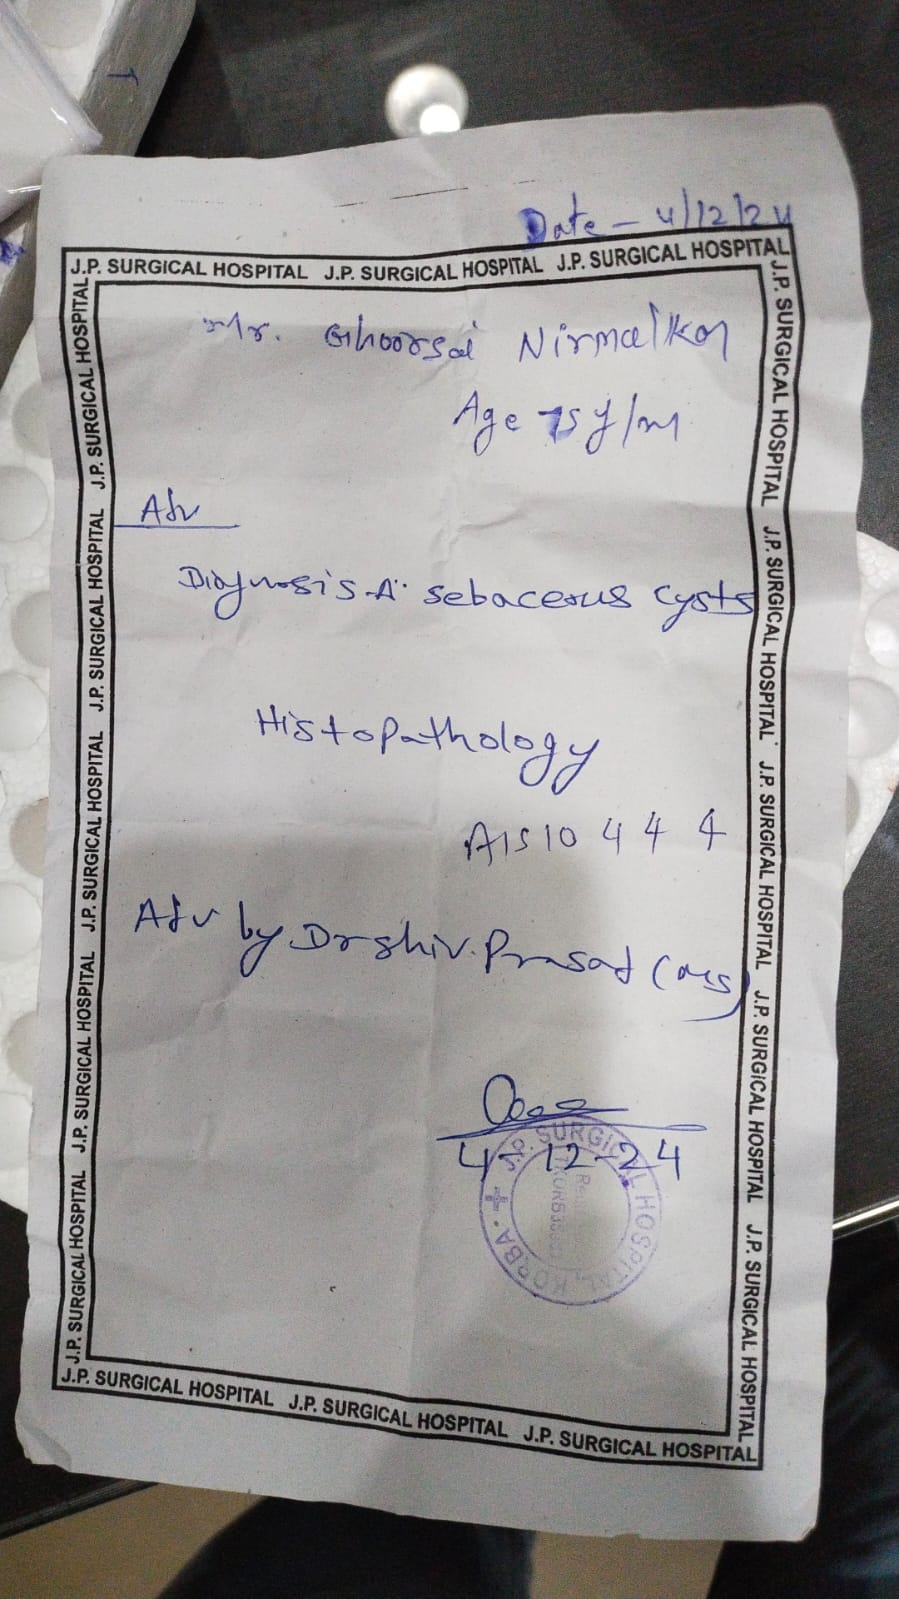 Date - 4/12/24
J.P. SURGICAL HOSPITAL J.P. SURGICAL HOSPITAL J.P. SURGICAL HOSPITAL
Mr. Ghoorsai Nirmalkar
Age 75 y/m
Adv
Diagnosis A: sebaceous cysts
Histopathology
A1510444
Adv by Dr shiv. Prasad (MS)
4-12-24
J.P. SURGICAL HOSPITAL, KORBA
J.P. SURGICAL HOSPITAL J.P. SURGICAL HOSPITAL J.P. SURGICAL HOSPITAL
J.P. SURGICAL HOSPITAL J.P. SURGICAL HOSPITAL J.P. SURGICAL HOSPITAL J.P. SURGICAL HOSPITAL J.P. SURGICAL HOSPITAL
J.P. SURGICAL HOSPITAL J.P. SURGICAL HOSPITAL J.P. SURGICAL HOSPITAL J.P. SURGICAL HOSPITAL J.P. SURGICAL HOSPITAL